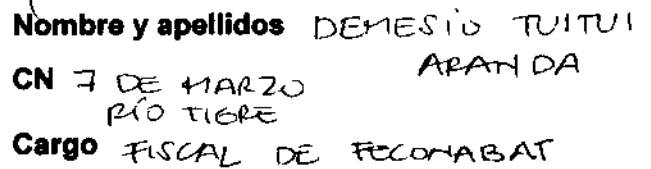 Nombre y apellidos DEMESIO TUITUI
ARANDA
CN 7 DE MARZO
RÍO TIGRE
Cargo FISCAL DE FECONABAT